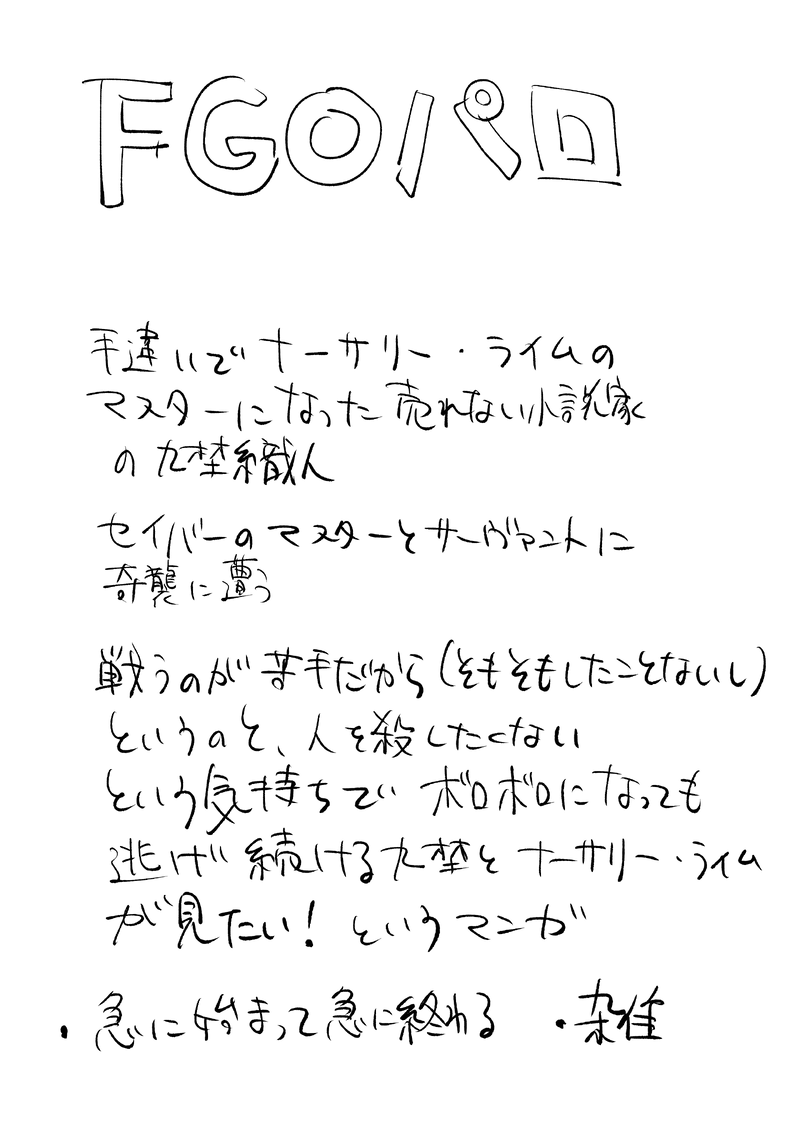 FGOパロ
手違いでナーサリー・ライムの
マスターになった売れない小説家
の九埜織人
セイバーのマスターとサーヴァントに
奇襲に遭う
戦うのが苦手だから(そもそもしたことないし)
というのと、人を殺したくない
という気持ちでボロボロになっても
逃げ続ける九埜とナーサリー・ライム
が見たい!というマンガ
・急に始まって急に終わる ・雑